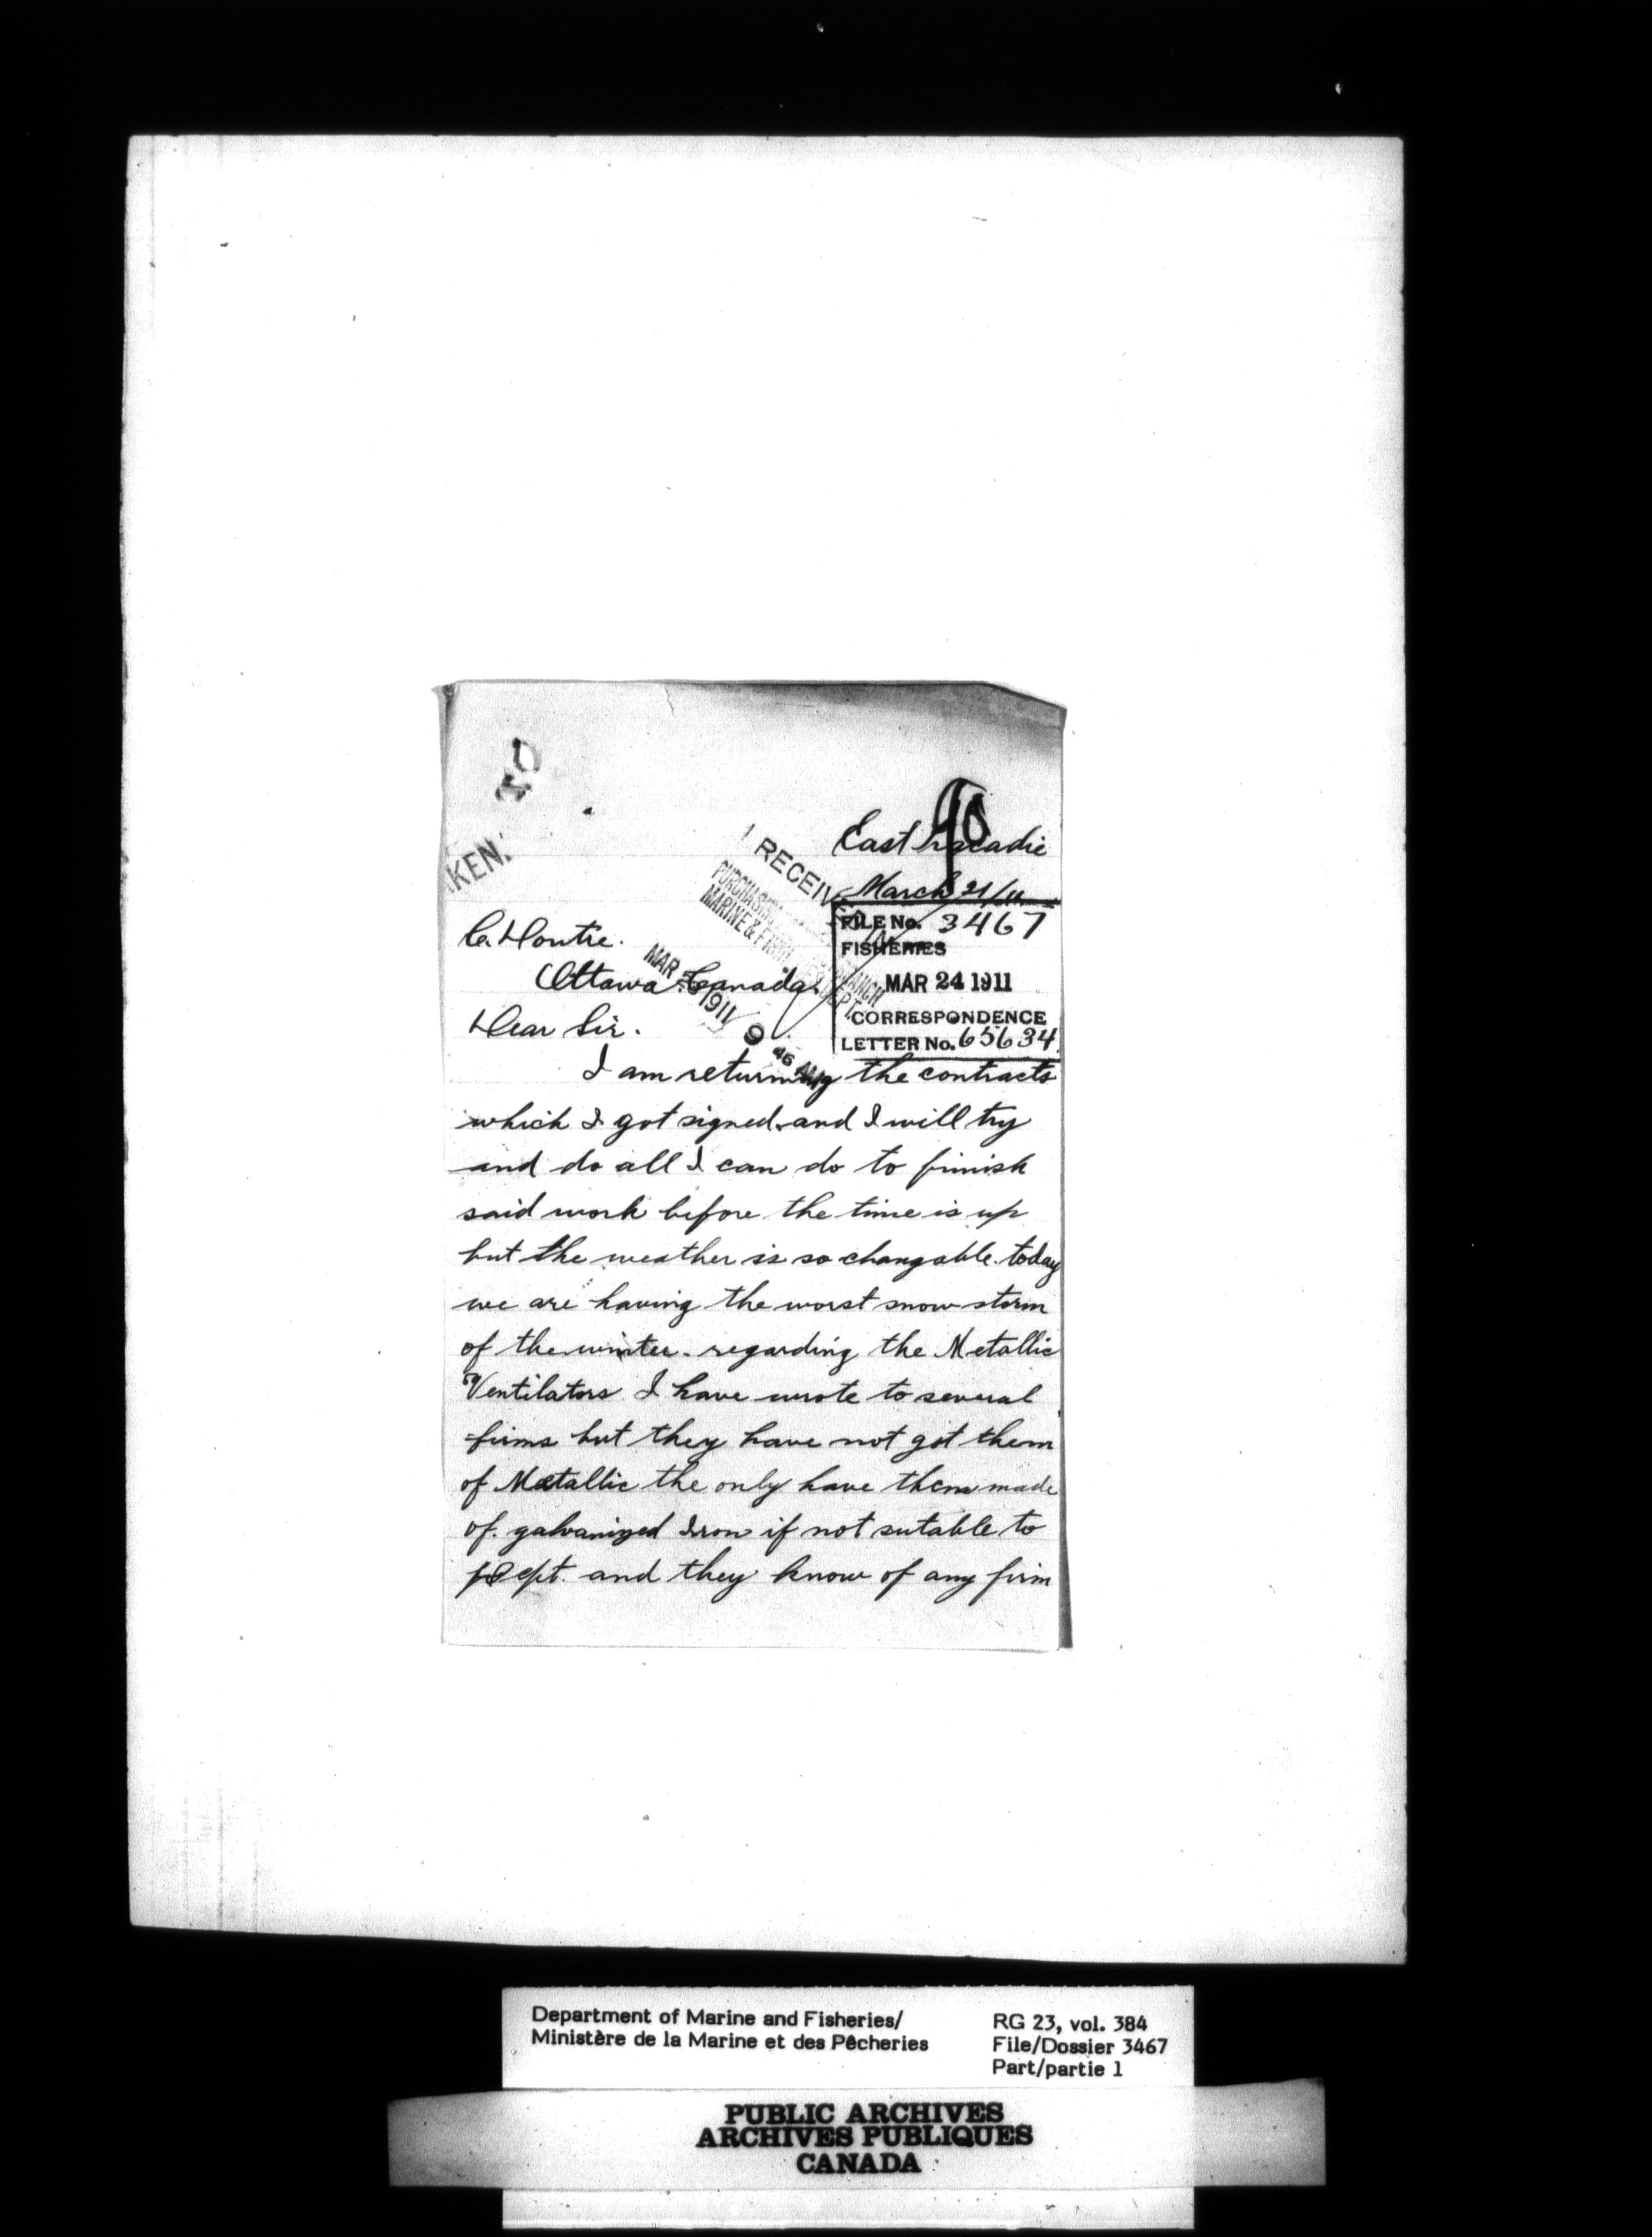 90
East Tracadie
March 21/11
KEN.
RECEIVED
PURCHASING BRANCH
MARINE & FISHERIES DEPT.
MAR 1911
9 46 AM
FILE No. 3467
FISHERIES
MAR 24 1911
CORRESPONDENCE
LETTER No. 65634
C. Doutre.
Ottawa. Canada.
Dear Sir.
I am returning the contracts
which I got signed. and I will try
and do all I can do to finish
said work before the time is up
but the weather is so changable. today
we are having the worst snow storm
of the winter. regarding the Metallic
Ventilators I have wrote to several
firms but they have not got them
of Metallic the only have them made
of. galvanized Iron if not sutable to
Dept. and they know of any firm
Department of Marine and Fisheries/
Ministère de la Marine et des Pêcheries
RG 23, vol. 384
File/Dossier 3467
Part/partie 1
PUBLIC ARCHIVES
ARCHIVES PUBLIQUES
CANADA